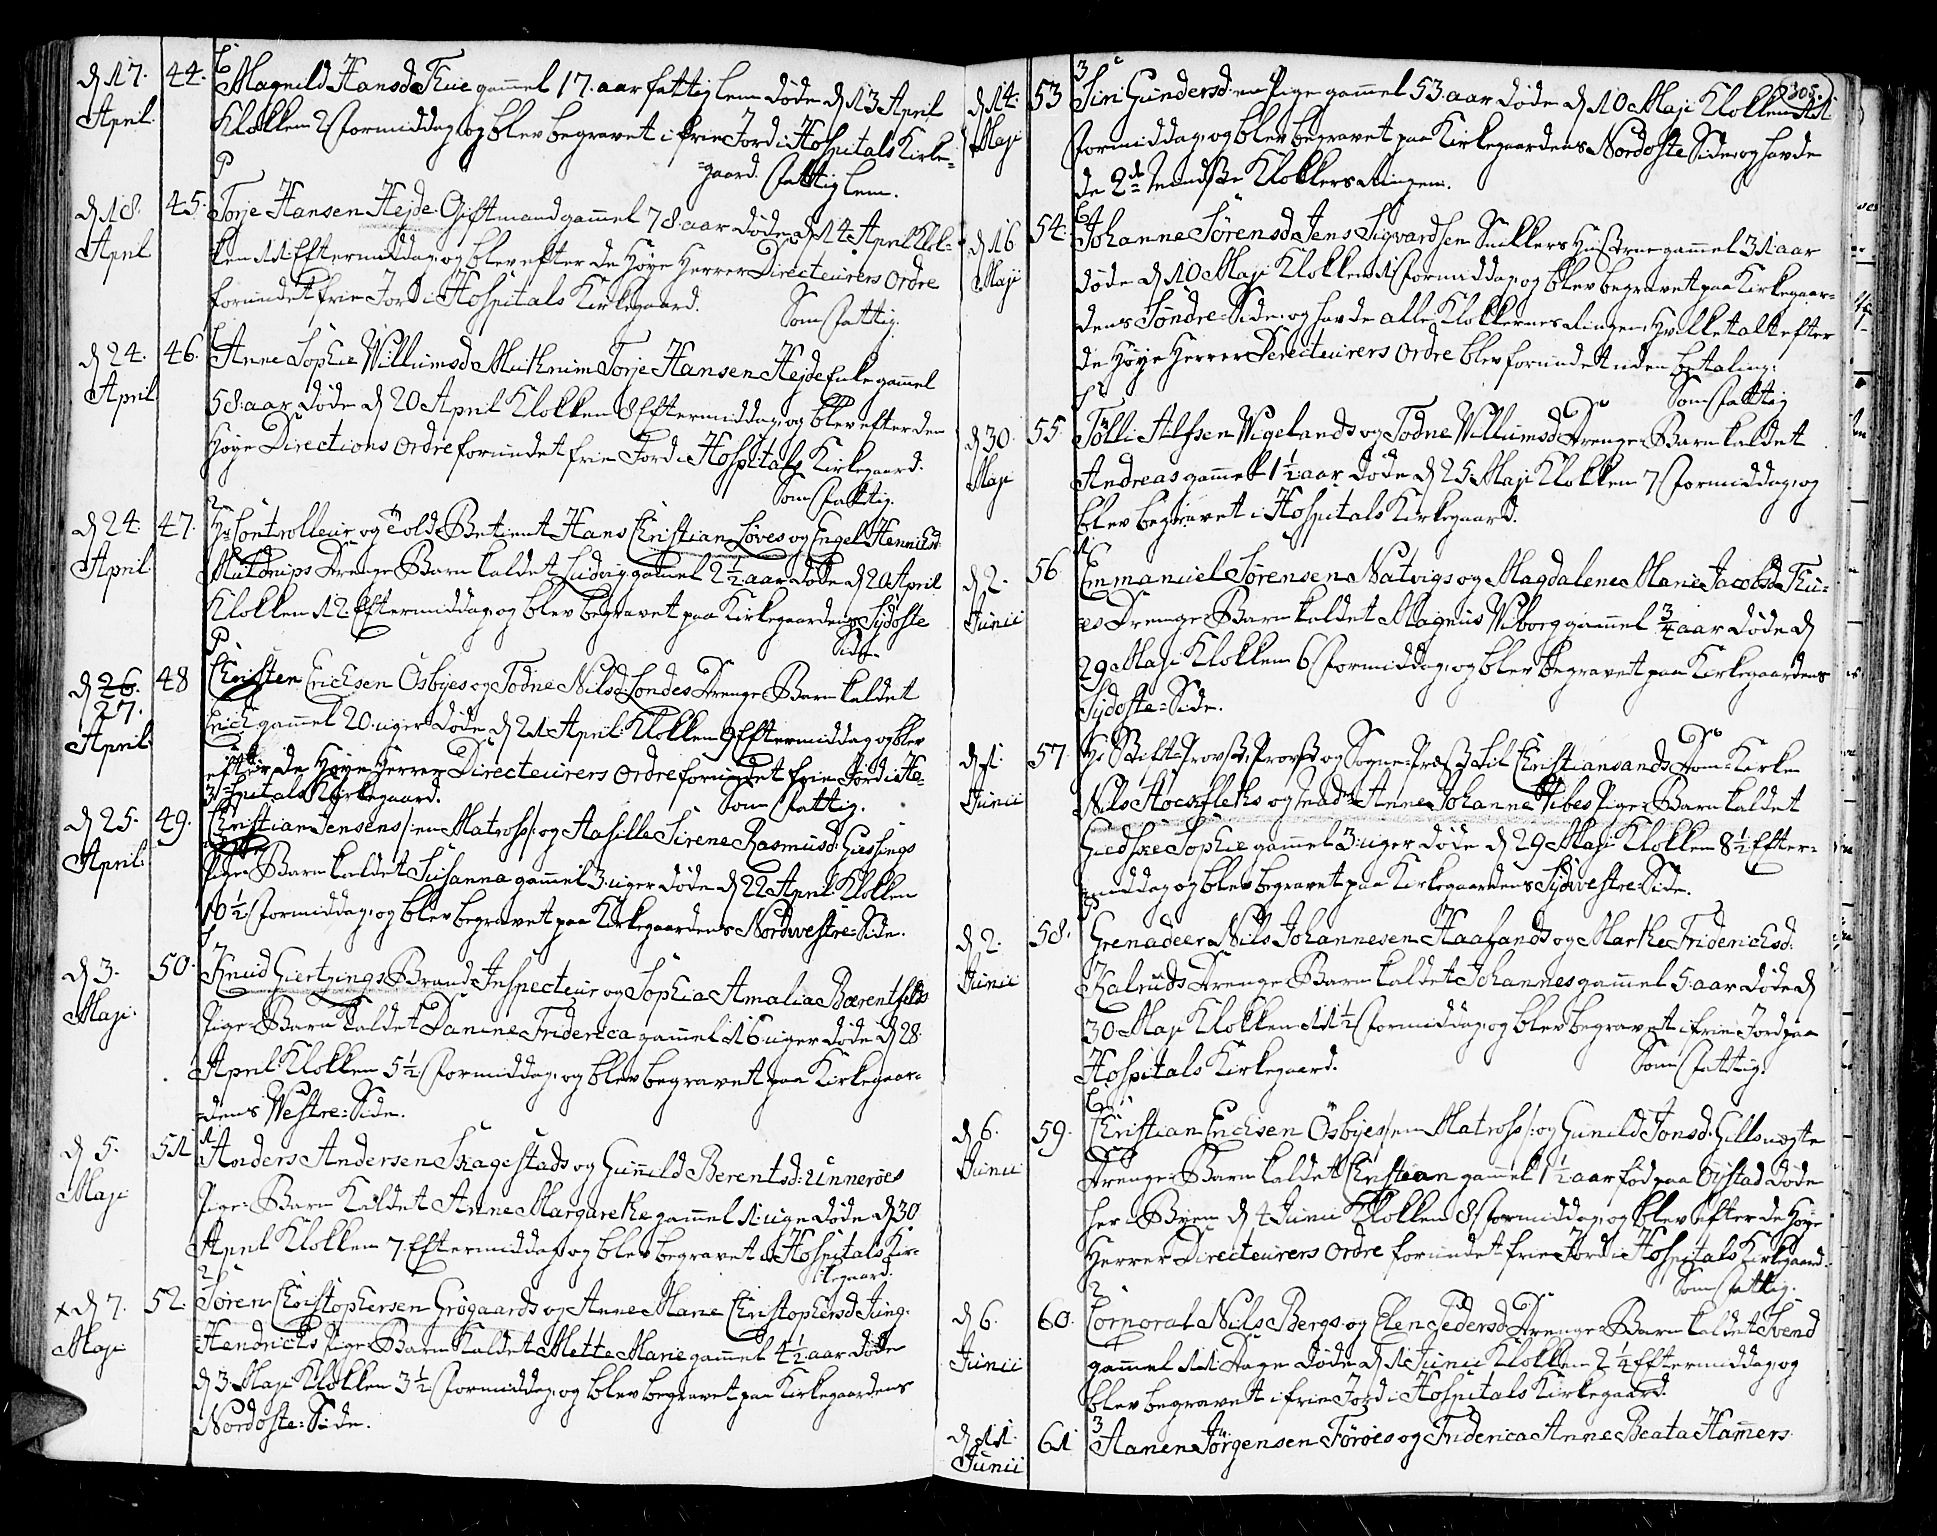 d 17. April 44. Magnild Hansd Tue gamel 17. aar fattig lem døde d 13 April
Klokken 2 formiddag, og blev begravet i frie Jord i Hospitals Kirke=
=gaard. fattig lem.
d 18. April 45. Torje Hansen Hejde Giftmand gamel 78 aar døde d 14 April Klok=
ken 11 Eftermiddag, og blev efter de Høye Herrer Directeurers Ordre
forundet frie Jord i Hospitals Kirkegaard. Som fattig.
d 24. April 46. Anne Sophie Willumsd Torje Hansen Hejde Enke gamel
58 aar døde d 20 April Klokken 8 Eftermiddag, og blev efter den
Høye Directions Ordre forundet frie Jord i Hospitals Kirkegaard.
Som fattig.
d 24. April 47. Hr Controlleur og Told Betient Hans Christian Løves og Engel Henrichsd
Drenge Barn kaldet Ludvig gamel 2½ aar døde d 20 April
Klokken 12 Eftermiddag, og blev begravet paa Kirkegaardens Sydoste
Side.
d 26. 27. April 48 Christen Erichsen Osbyes og Todne Nilsd Londes Drenge Barn kaldet
Erich gamel 20 uger døde d 21 April Klokken 9 Eftermiddag og blev
efter de Høye Herrer Directeurers Ordre forundet frie Jord i Ho=
=spitals Kirkegaard. Som fattig.
d 25. April 49. Christian Jensens /: en Matross :/ og Aasille Sirene Rasmusd Giessings
Pige Barn kaldet Susanna gamel 3 uger døde d 22 April Klokken
10½ formiddag, og blev begravet paa Kirkegaardens Nordvestre=Side.
d 3. Maji. 50. Knud Giertzings Brand Inspecteur og Sophia Amalia Bærentsens
Pige Barn kaldet Danine Friderica gamel 16 uger døde d 28
April Klokken 5½ formiddag, og blev begravet paa Kirkegaar=
=dens Vestre=Side.
d 5. Maji 51 Anders Andersen Skagestads og Gunild Berentsd: Unnerøes
Pige Barn kaldet Anne Margarethe gamel 1 uge døde d 30
April Klokken 7 Eftermiddag og blev begravet i Hospitals Kir=
kegaard.
x d 7. Maji 52. Søren Christophersen Grøgaards og Anne Marie Christophersd Jung=
Hendrichs Pige Barn kaldet Mette Marie gamel 4½ aar døde
d 3 Maji Klokken 3½ formiddag, og blev begravet paa Kirkegaardens
Nordoste=Side.
305.
d 14. Maji 53 Siri Gundersd: en Pige gamel 53 aar døde d 10 Maji Klokken 11
formiddag, og blev begravet paa Kirkegaardens Nordoste Side, og havde
de 2de mindste Klokkers Ringen.
d 16 Maji 54. Johanne Sørensd Jens Sigvardsen Snilkers Hustrue gamel 31 aar
døde d 10 Maji Klokken 1 formiddag, og blev begravet paa Kirkegaar=
dens Søndre=Side, og havde alle Klokkernes Ringen, Hvilket alt efter
de Høye Herrer Directeurers Ordre blev forundet uden betaling.
Som fattig
d 30. Maji 55. Tølli Alfsen Vigelands og Todne Willumsd Drenge Barn kaldet
Andreas gamel 1½ aar døde d 25 Maji Klokken 7 formiddag, og
blev begravet i Hospitals Kirkegaard.
d 2. Junii 56 Emmanuel Sørensen Natvigs og Magdalene Marie Jacobsd Tu=
es Drenge Barn kaldet Magnus Wiborg gamel ¾ aar døde d
29 Maji Klokken 6 formiddag, og blev begravet paa Kirkegaardens
Sydoste=Side.
d 1. Junii 57. Hr Stift=Provst, Provst og Sogne=Præst til Christiansands Dom=Kirke
Nils Hoeskfleths og Anne Johanne Vibes Pige Barn kaldet
Giedske Sophie gamel 3 uger døde d 29 Maji Klokken 8½ Efter=
=middag og blev begravet paa Kirkegaardens Sydvestre=Side.
d 2. Junii 58. Grenadeer Nils Johannesen Haalands og Marthe Friderichsd:
Kalruds Drenge Barn kaldet Johannes gamel 5 aar døde d
30 Maji Klokken 11½ formiddag, og blev begravet i frie Jord paa
Hospitals Kirkegaard. Som fattig.
d 6. Junii 59. Christian Erichsen Osbyes /: en Matross :/ og Gunild Jonsd: Gillsnøgte
Drenge Barn kaldet Christian gamel 1½ aar fød paa Oystad døde
her i Byen d 4 Junii Klokken 8 formiddag, og blev efter de Høye
Herrer Directeurers Ordre forundet frie Jord i Hospitals Kirkegaard.
Som fattig.
d 6. Junii 60. Corporal Nils Bergs og Elen Pedersd Drenge Barn kaldet Svend
gamel 11 Dage døde d 1 Junii Klokken 2¼ Eftermiddag, og
blev begravet i frie Jord i Hospitals Kirkegaard.
d 11. Junii 61 Aanen Jörgensen Torøes og Friderica Anne Beata Hamers